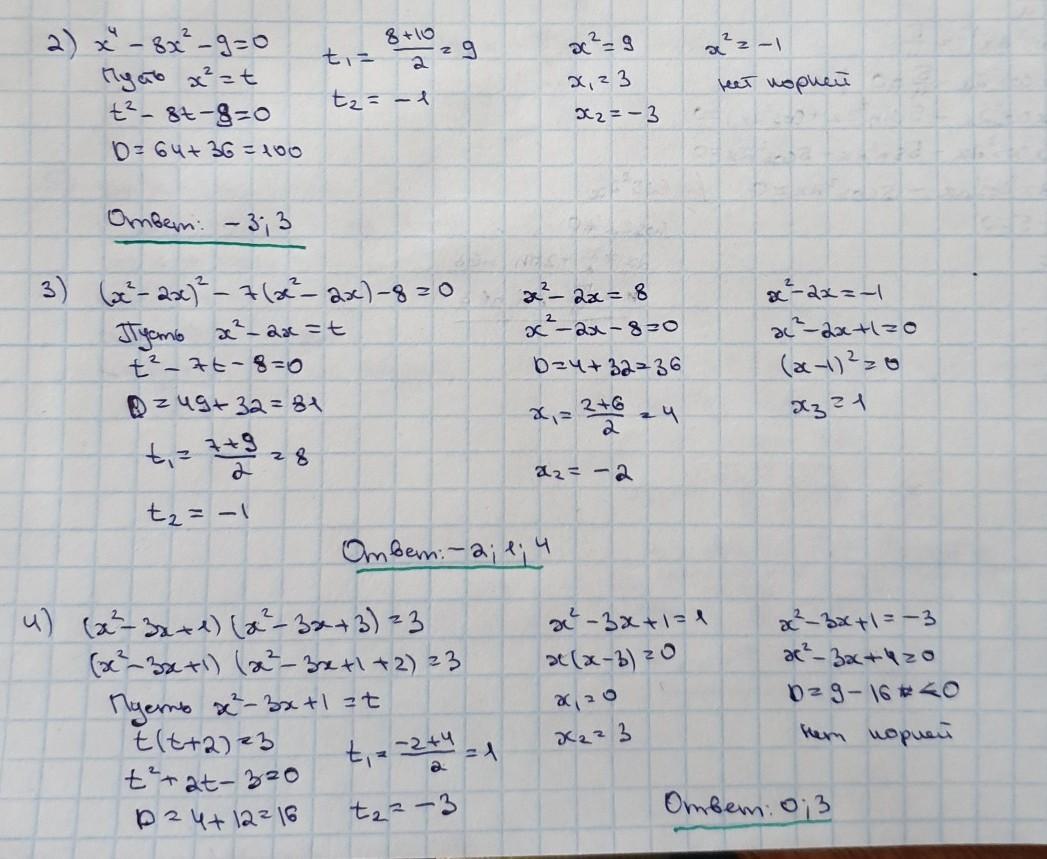 2) x⁴ - 8x² - 9 = 0
Пусть x² = t
t² - 8t - 9 = 0
D = 64 + 36 = 100
t₁ = (8+10)/2 = 9
t₂ = -1
x² = 9
x₁ = 3
x₂ = -3
x² = -1
нет корней
Ответ: -3; 3
3) (x² - 2x)² - 7(x² - 2x) - 8 = 0
Пусть x² - 2x = t
t² - 7t - 8 = 0
D = 49 + 32 = 81
t₁ = (7+9)/2 = 8
t₂ = -1
x² - 2x = 8
x² - 2x - 8 = 0
D = 4 + 32 = 36
x₁ = (2+6)/2 = 4
x₂ = -2
x² - 2x = -1
x² - 2x + 1 = 0
(x-1)² = 0
x₃ = 1
Ответ: -2; 1; 4
4) (x² - 3x + 1)(x² - 3x + 3) = 3
(x² - 3x + 1)(x² - 3x + 1 + 2) = 3
Пусть x² - 3x + 1 = t
t(t+2) = 3
t² + 2t - 3 = 0
D = 4 + 12 = 16
t₁ = (-2+4)/2 = 1
t₂ = -3
x² - 3x + 1 = 1
x(x-3) = 0
x₁ = 0
x₂ = 3
x² - 3x + 1 = -3
x² - 3x + 4 = 0
D = 9 - 16 < 0
нет корней
Ответ: 0; 3